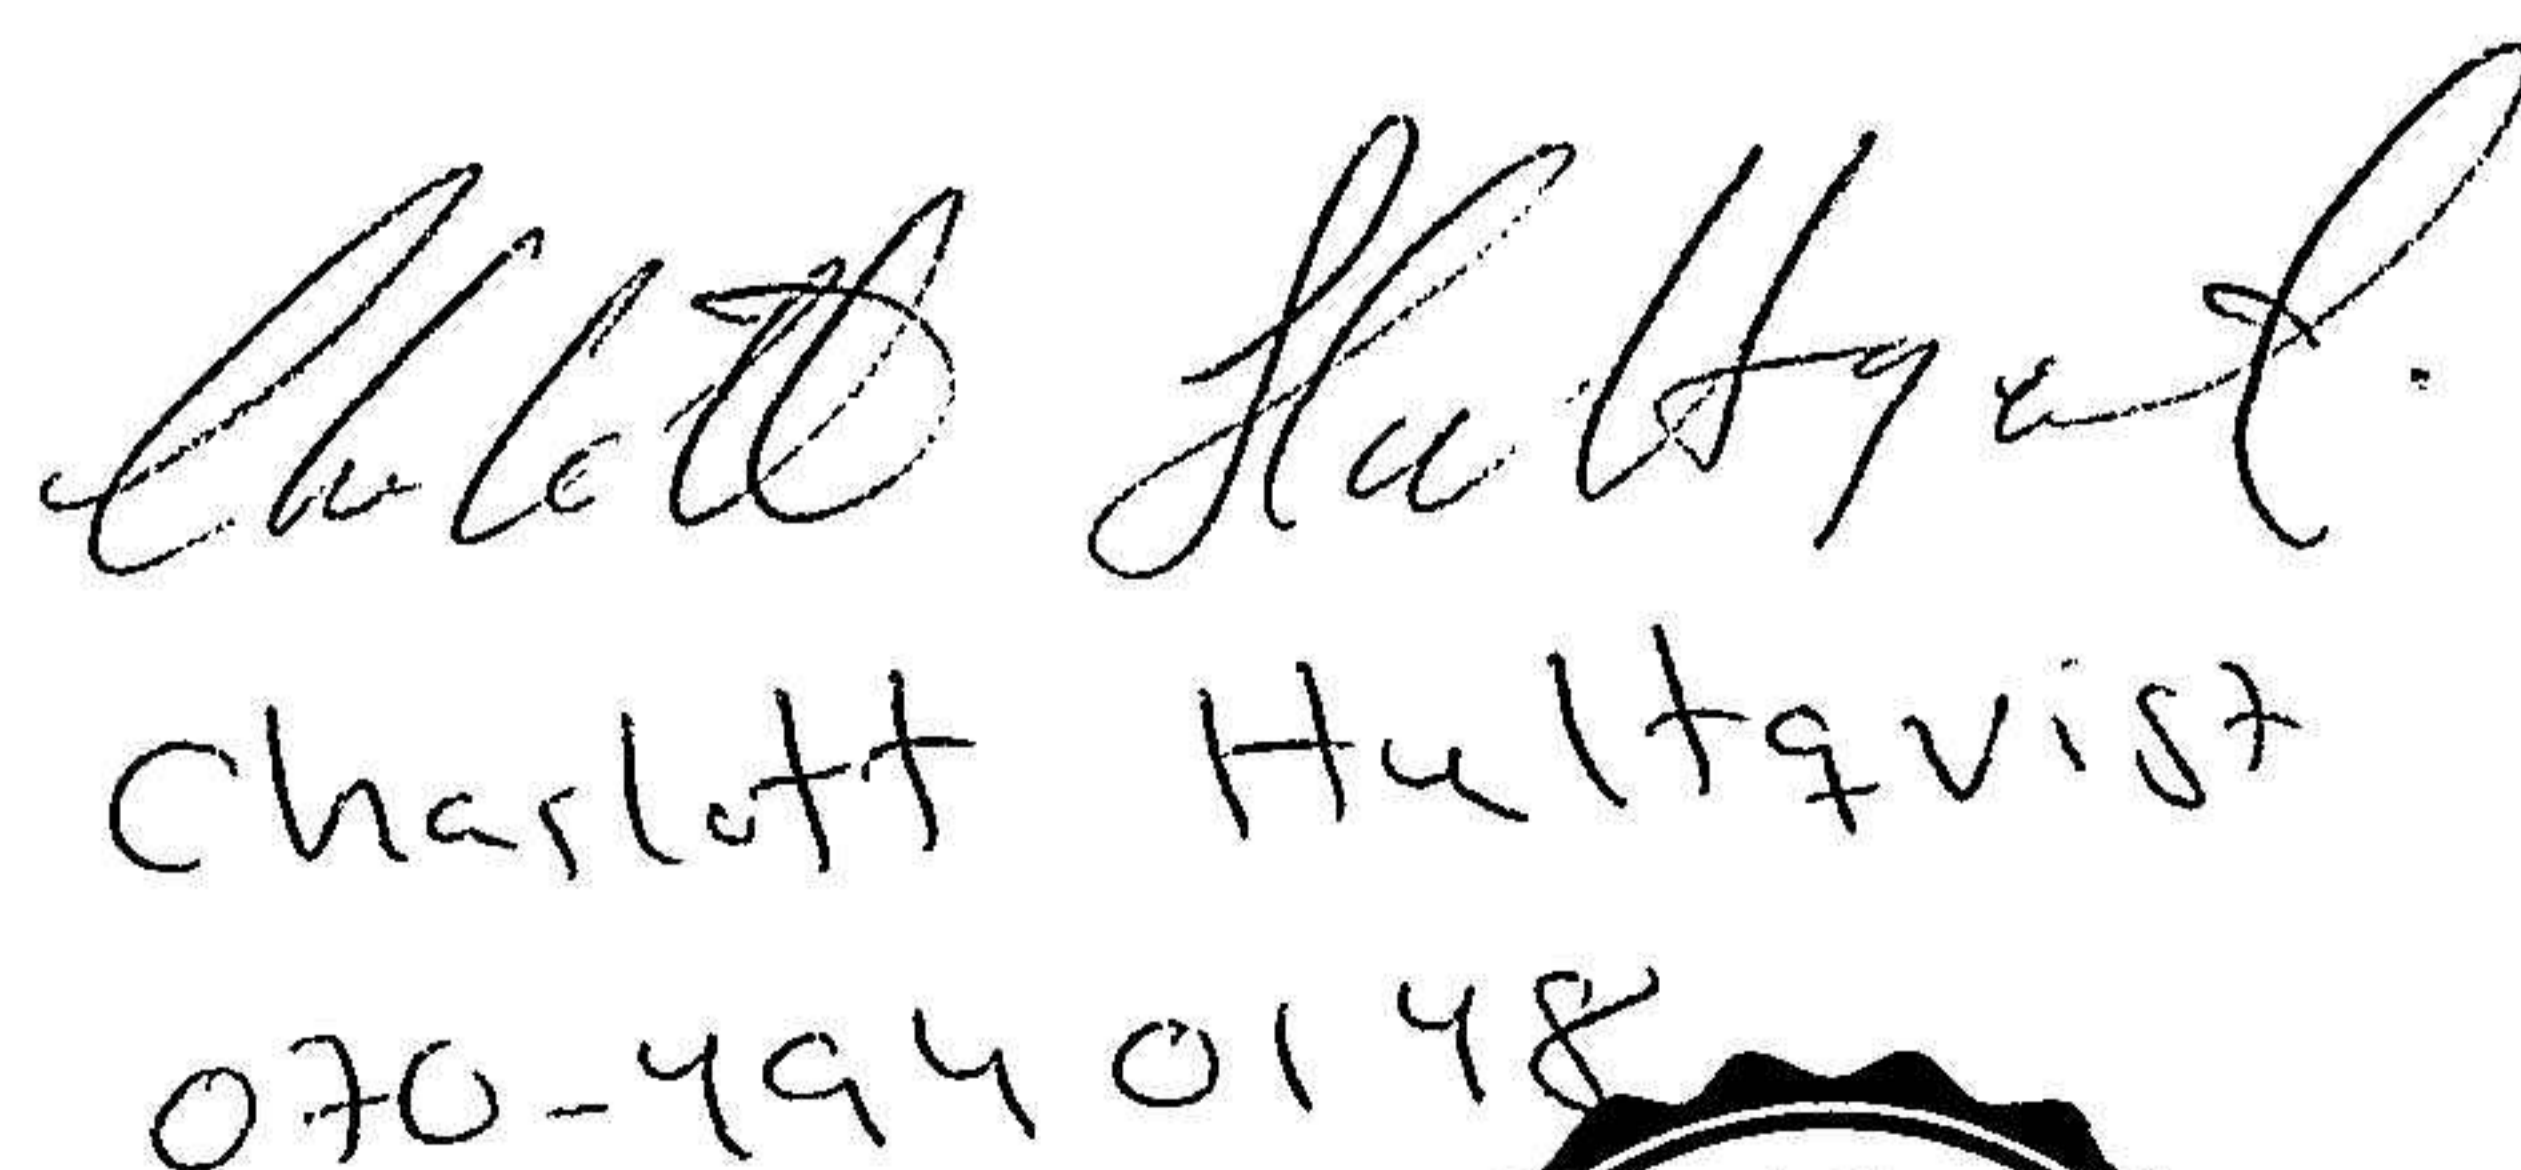 Charlott Hultqvist
Charlott Hultqvist
070-494 0148